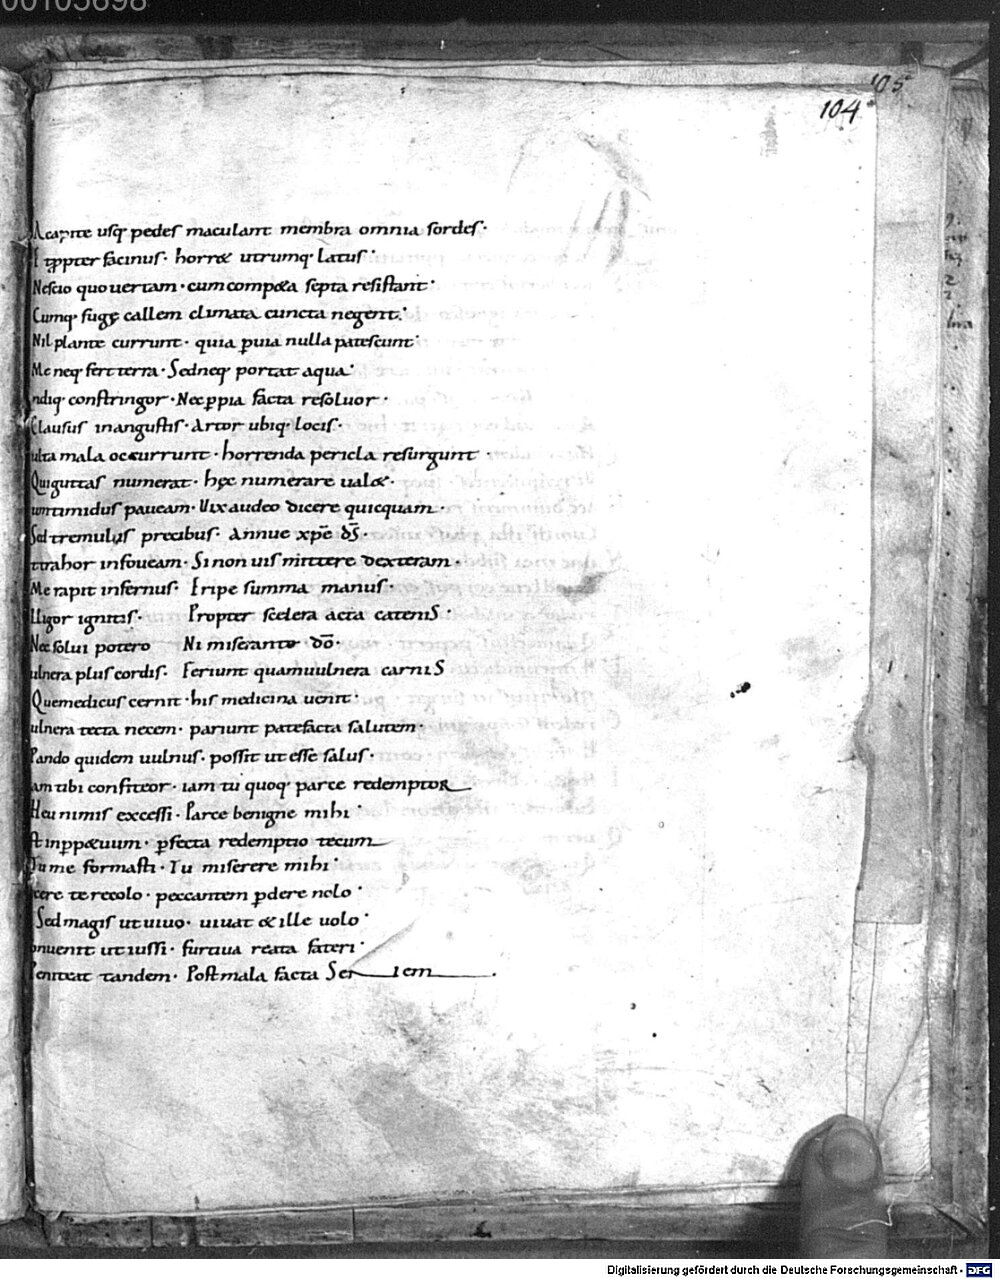 00105698
105
104
A capite usq; pedes maculant membra omnia sordes·
Et ꝓpter facinus· horret utrumq; latus·
Nescio quo uertam· cum competa septa resistant·
Cumq; fugę callem climata cuncta negent·
Nil plante currunt· quia ꝑuia nulla patescunt·
Me neq; fert terra· Sed neq; portat aqua·
ndiq; constringor· Nec ꝓpia facta resoluor·
Clausus in angustis· Artor ubiq; locis·
ulta mala occurrunt· horrenda pericla resurgunt·
Qui guttas numerat· hęc numerare ualet·
timidus paueam· Vix audeo dicere quicquam·
Sed tremulus precibus· Annue xp̄e ds̄·
ttrahor in foueam· Si non uis mittere dexteram·
Me rapit infernus· Eripe summa manus·
lligor ignitis· Propter scelera acta catenis·
Nec solui potero Ni miserante dō·
ulnera plus cordis· Feriunt quam uulnera carnis
Que medicus cernit· his medicina uenit·
ulnera tecta necem· pariunt patefacta salutem·
Pando quidem uulnus· possit ut esse salus·
am tibi confiteor· iam tu quoq; parce redemptor
Heu nimis excessi· Parce benigne mihi·
st in ꝑpetuum· ꝑfecta redemptio tecum
Tu me formasti· Tu miserere mihi·
cere te recolo· peccantem ꝑdere nolo·
Sed magis ut uiuo· uiuat & ille uolo·
onuenit ut iussi· furtiua reata fateri·
Peniteat tandem· Post mala facta Ser iem·
Digitalisierung gefördert durch die Deutsche Forschungsgemeinschaft - DFG